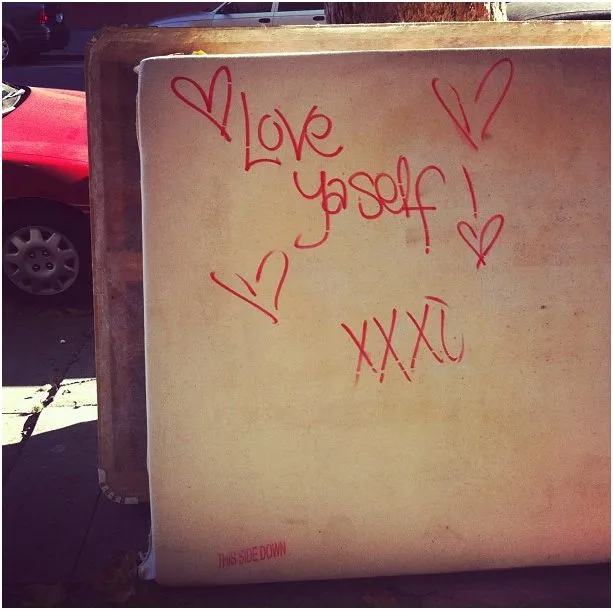 Love
yaself!
XXXI
THIS SIDE DOWN